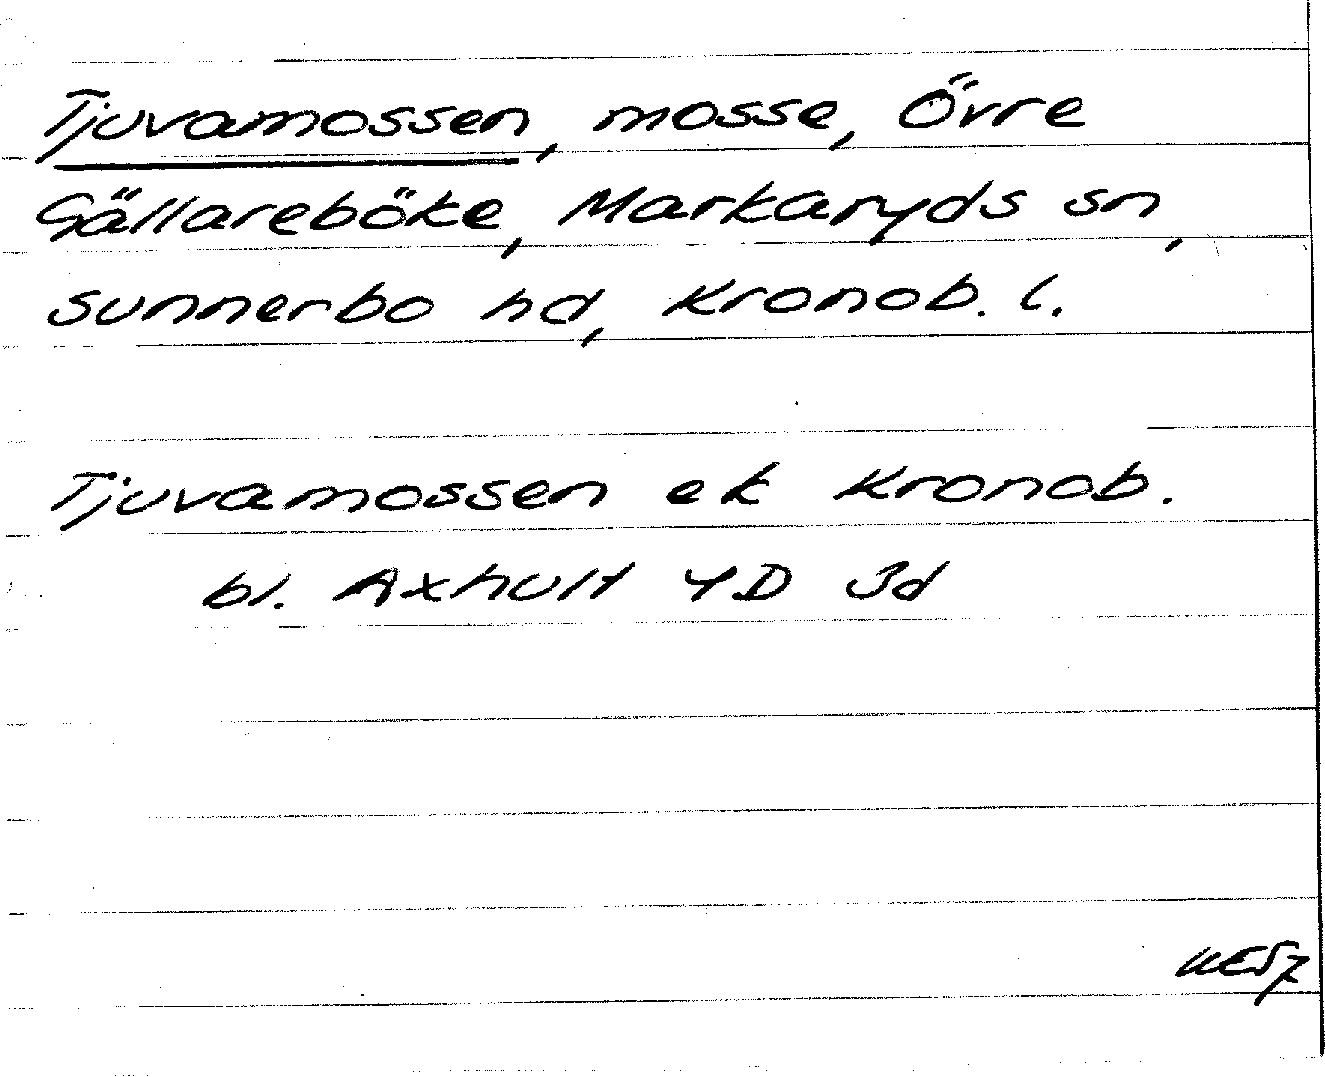 Tjuvamossen, mosse, Övre
Gällareböke, Markaryds sn,
Sunnerbo hd, Kronob. l.
Tjuvamossen ek Kronob.
bl. Axhult 4D 3d